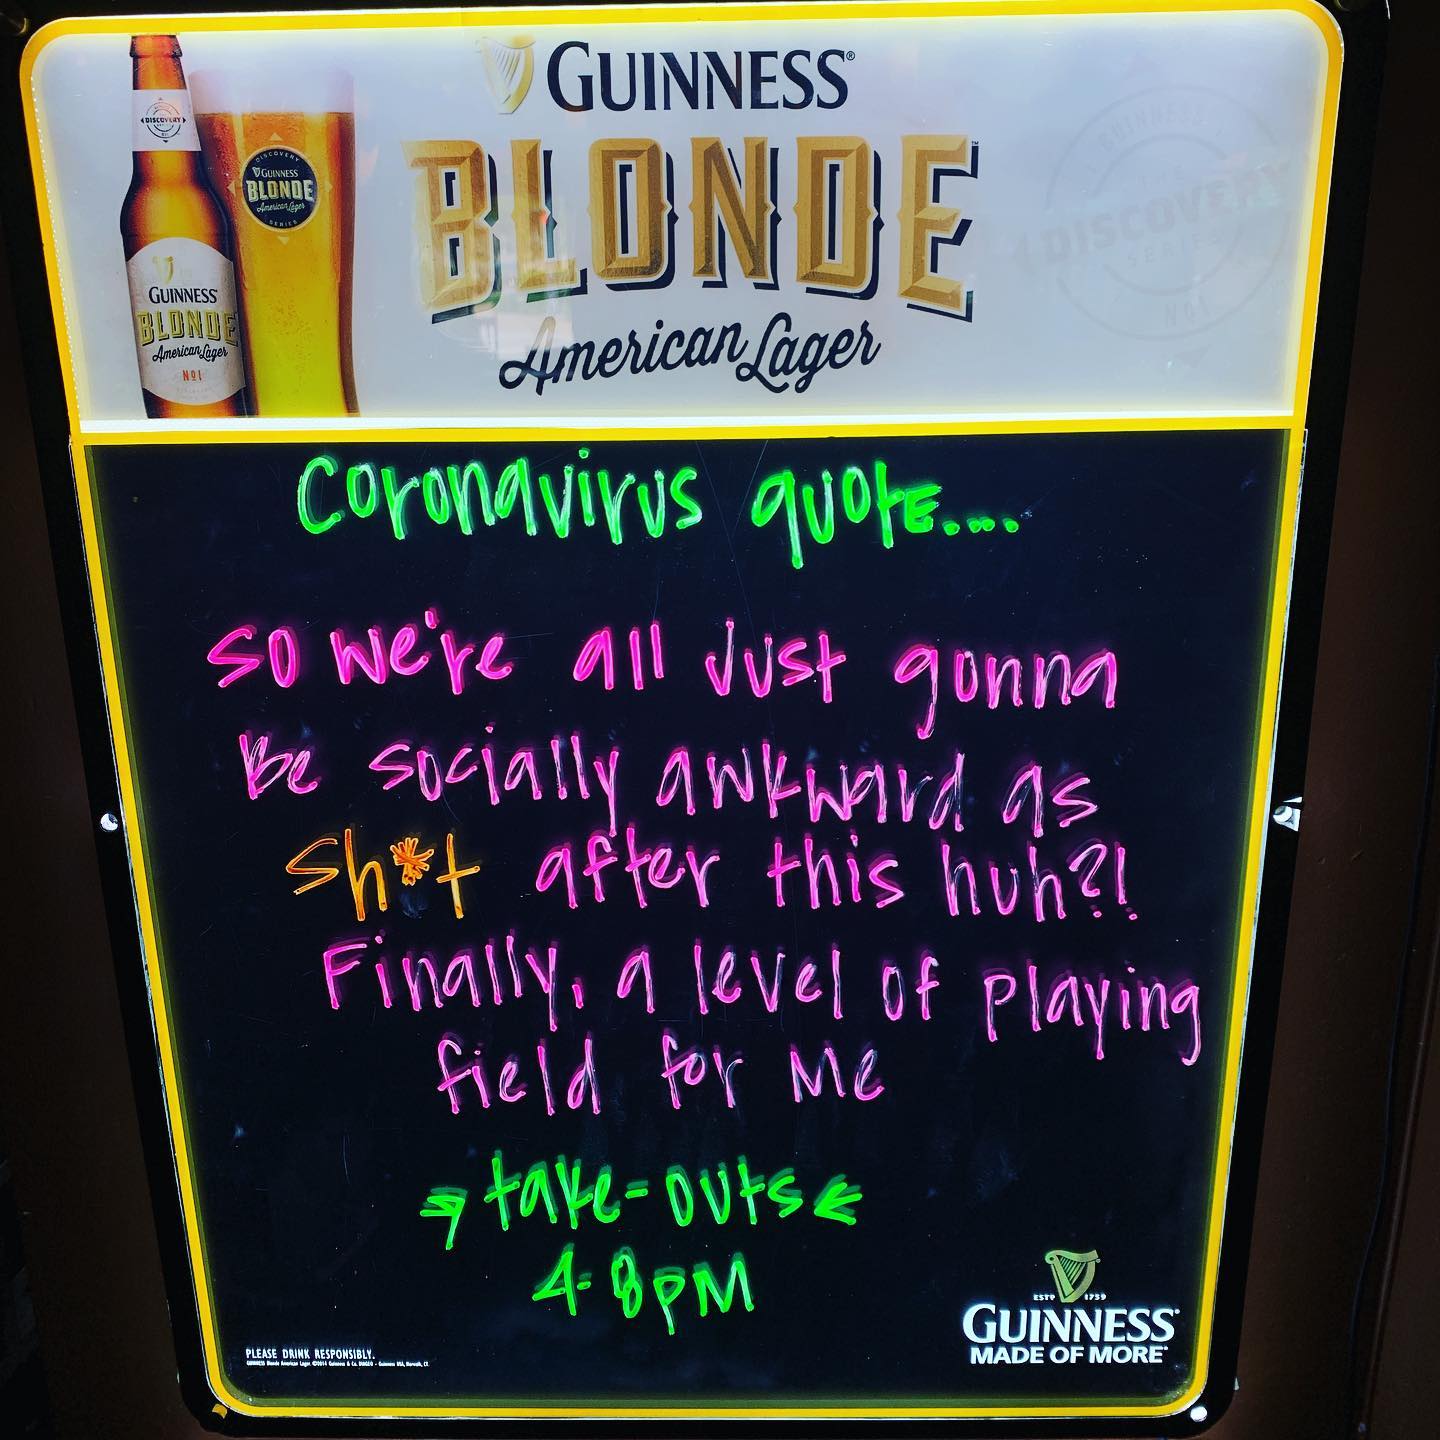 GUINNESS®
BLONDE™
American Lager
DISCOVERY
DISCOVERY
GUINNESS
BLONDE
American Lager
SERIES
GUINNESS
BLONDE
American Lager
Nº1
GUINNESS
DISCOVERY
SERIES
Nº1
Coronavirus quote....
so we're all just gonna
Be socially awkward as
sh*t after this huh?!
Finally, a level of playing
field for Me
→ take-outs ←
4-8PM
ESTD 1759
GUINNESS®
MADE OF MORE®
PLEASE DRINK RESPONSIBLY.
GUINNESS Blonde American Lager. ©2014 Guinness & Co. DIAGEO - Guinness USA, Norwalk, CT.